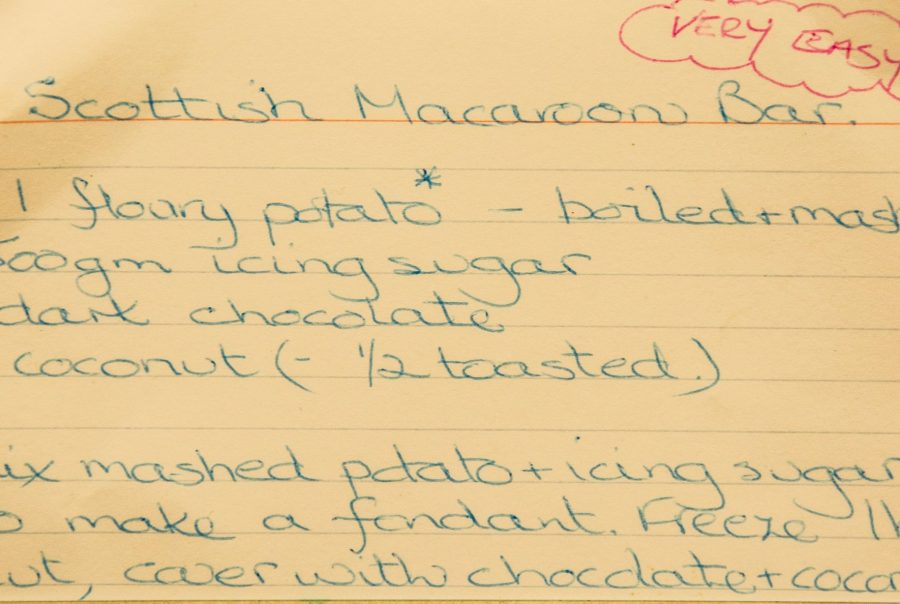 VERY EASY
Scottish Macaroon Bar.
1 floury potato* - boiled + mash
500gm icing sugar
dark chocolate
coconut (- 1/2 toasted.)
ix mashed potato + icing sugar
o make a fondant. Freeze 1h
ut, cover with chocolate + coco